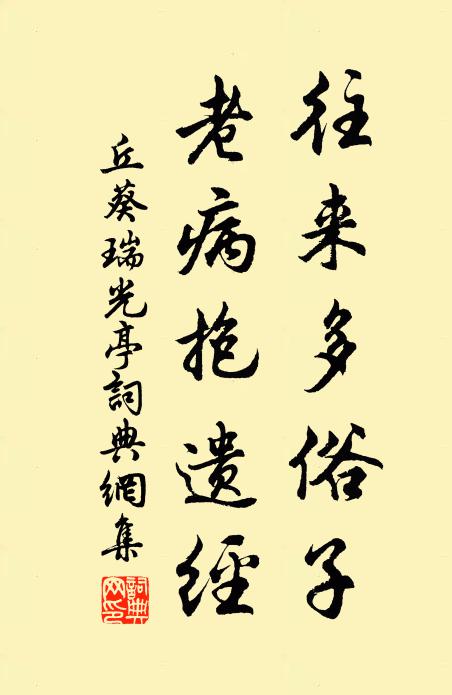 往来多俗子
老病抱遗经
丘葵瑞光亭詞典網集
詞典网印